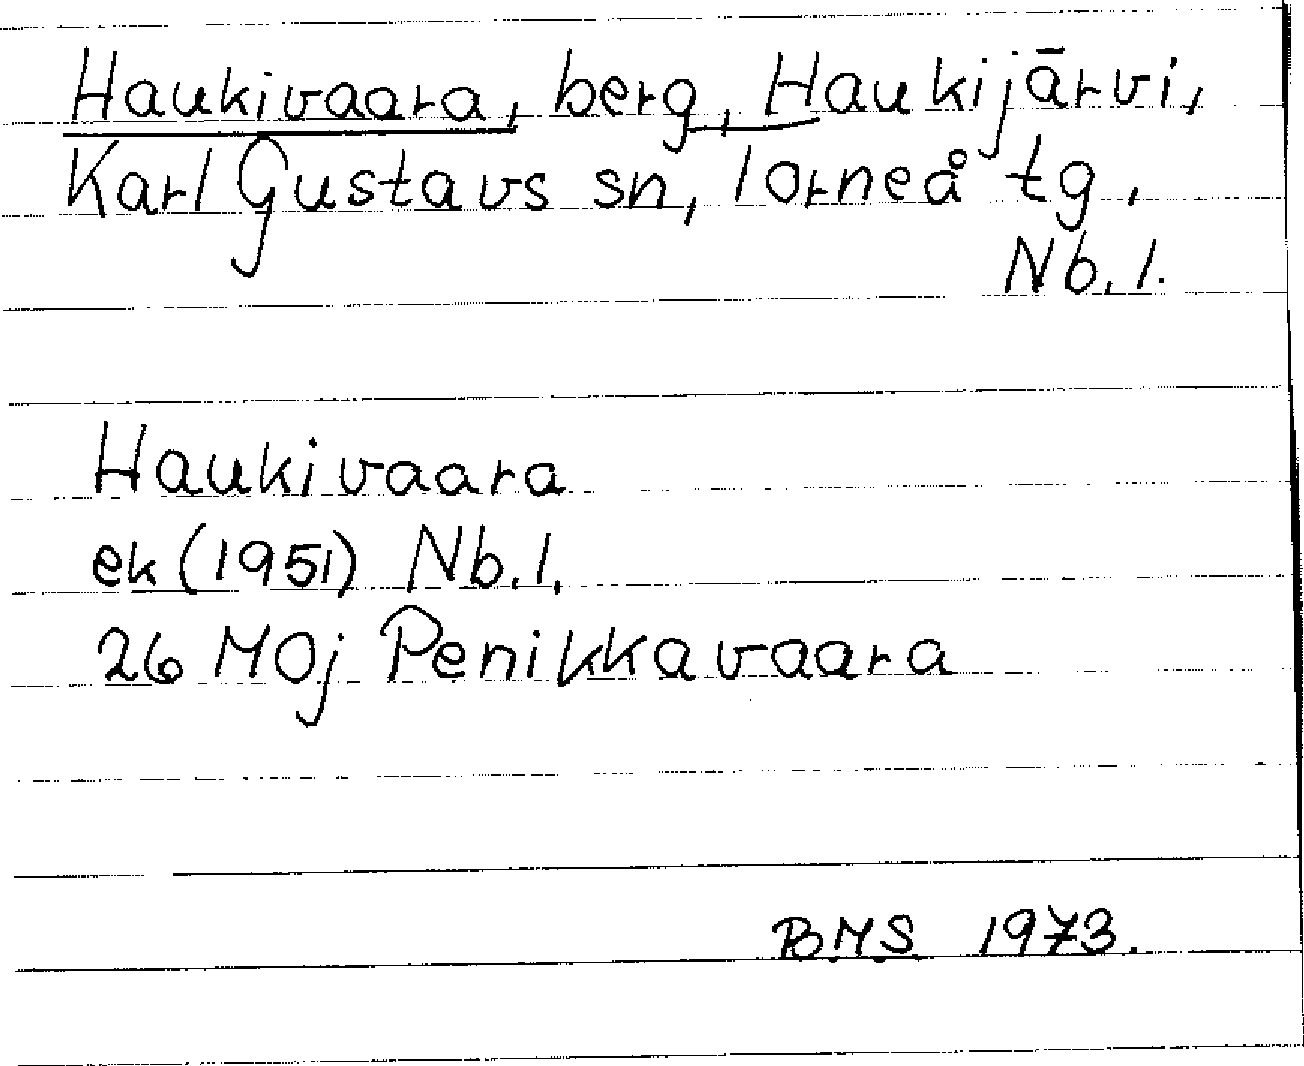 Haukivaara, berg, Haukijärvi,
Karl Gustavs sn, Torneå tg,
Nb. l.
Haukivaara
ek (1951) Nb. l.
26 M0j Penikkavaara
B.M.S. 1973.